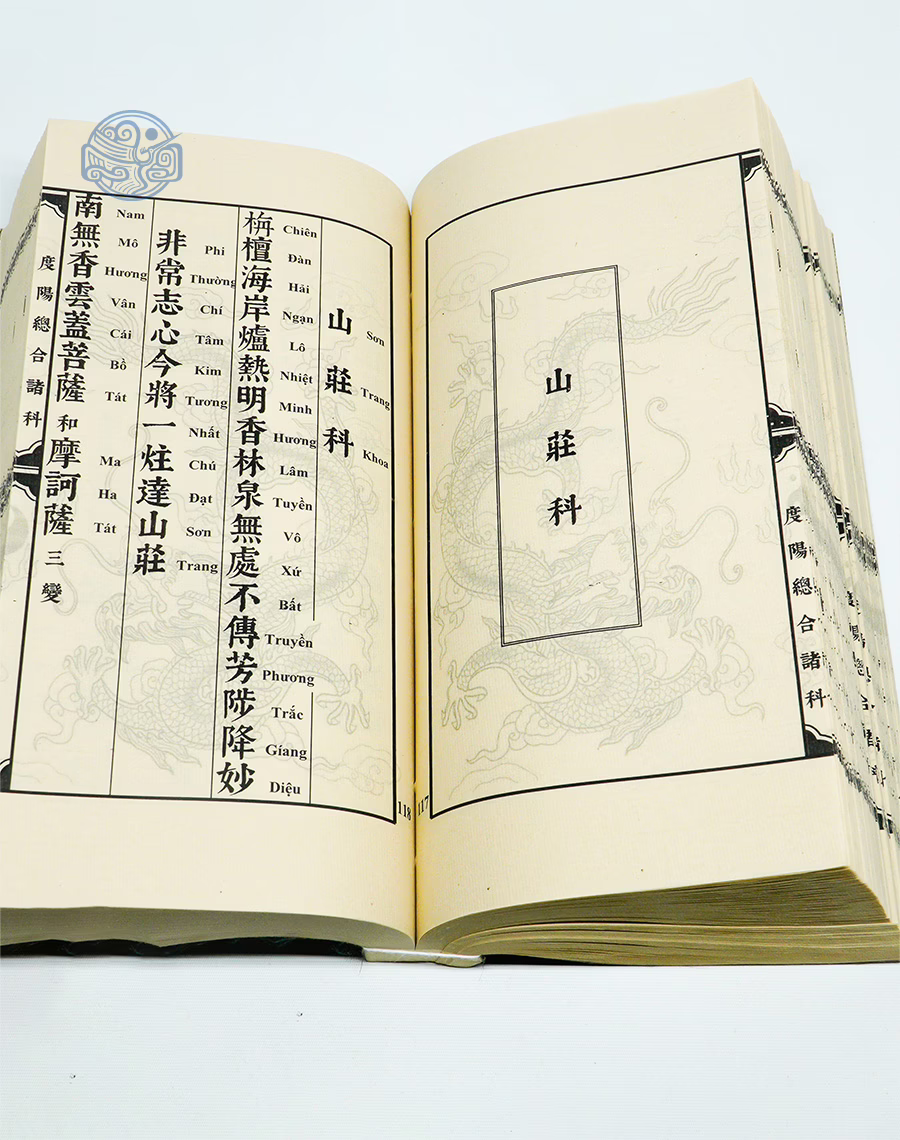 山莊科
度陽總合諸科
117
山莊科
Sơn Trang Khoa
栴檀海岸爐熱明香林泉無處不傳芳陟降妙
Chiên Đàn Hải Ngạn Lô Nhiệt Minh Hương Lâm Tuyền Vô Xứ Bất Truyền Phương Trắc Gíang Diệu
非常志心今將一炷達山莊
Phi Thường Chí Tâm Kim Tương Nhất Chú Đạt Sơn Trang
南無香雲蓋菩薩和摩訶薩三變
Nam Mô Hương Vân Cái Bồ Tát Ma Ha Tát
度陽總合諸科
118